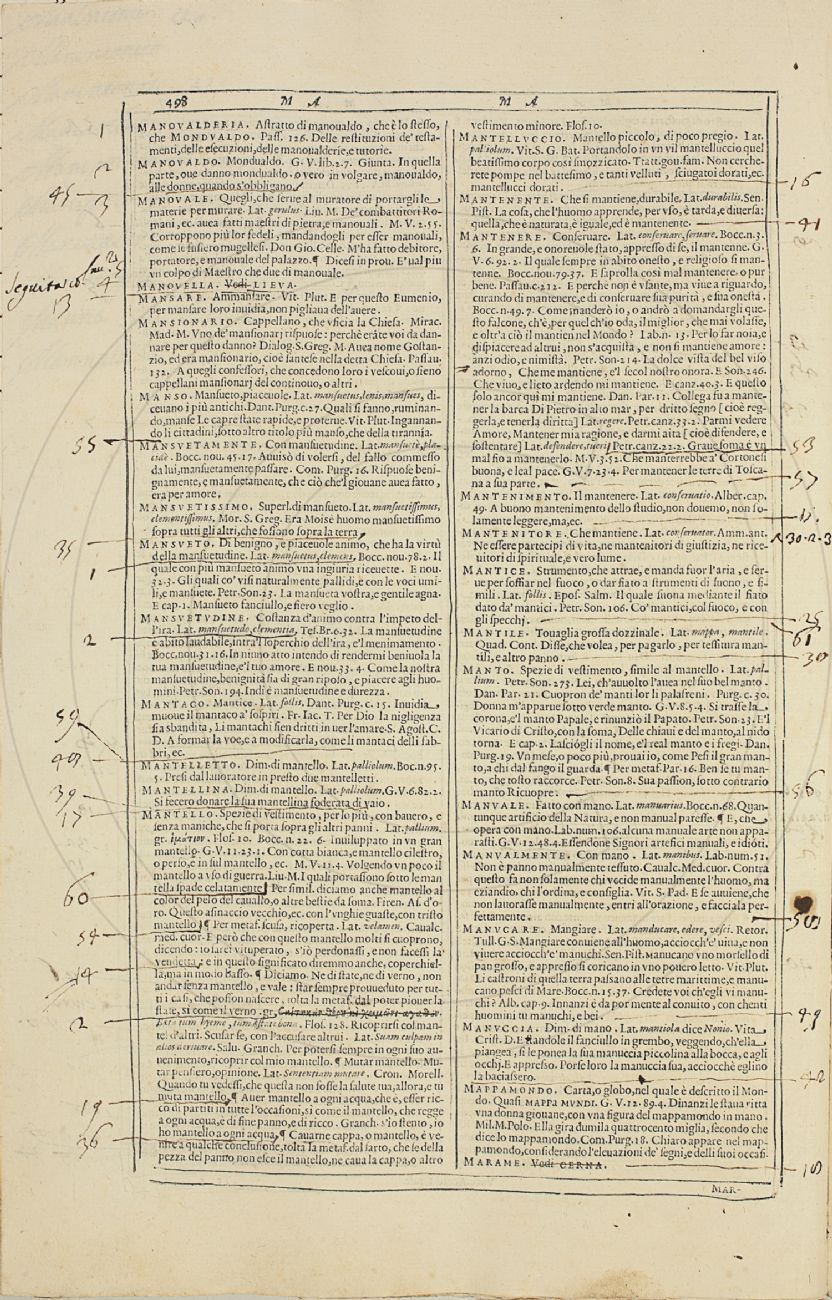 498 M A M A
MANOVALDERIA. Astratto di manoualdo, che è lo stesso,
che MONDVALDO. Pass. 126. Delle restituzioni de' testa-
menti, delle esecuzioni, delle manoualderie, e tutorie.
MANOVALDO. Mondualdo. G. V. lib. 2. 7. Giunta. In quella
parte, oue danno mondualdo, o vero in volgare, manoualdo,
alle donne, quando s'obbligano.
MANOVALE. Quegli, che serue al muratore di portargli le
materie per murare. Lat. gerulus. Liu. M. De' combattitori Ro-
mani, ec. auea fatti maestri di pietra, e manouali. M. V. 2. 55.
Corroppono più lor fedeli, mandandogli per esser manouali,
come se fussero mugellesi. Don Gio. Celle. M'ha fatto debitore,
portatore, e manouale del palazzo. ¶ Dicesi in prou. E' ual più
vn colpo di Maestro che due di manouale.
MANOVELLA. Vedi LIEVA.
MANSARE. Ammansare. Vit. Plut. E per questo Eumenio,
per mansare loro inuidia, non pigliaua dell'auere.
MANSIONARIO. Cappellano, che vficia la Chiesa. Mirac.
Mad. M. Vno de' mansionarj rispuose: perchè erāte voi da dan-
nare per questo danno? Dialog. S. Greg. M. Auea nome Gostan-
zio, ed era mansionario, cioè santese nella detta Chiesa. Passau.
132. A quegli confessori, che concedono loro i vescoui, o sieno
cappellani mansionarj del continouo, o altri.
MANSO. Mansueto, piaceuole. Lat. mansuetus, lenis, mansues, di-
ceuano i più antichi. Dant. Purg. c. 27. Quali si fanno, ruminan-
do, manse Le capre state rapide, e proterue. Vit. Plut. Ingannan-
do li cittadini, sotto altro titolo più manso, che della tirannia.
MANSVETAMENTE. Con mansuetudine. Lat. mansuetè, pla-
cidè. Bocc. nou. 45. 17. Auuisò di volersi, del fallo commesso
da lui, mansuetamente passare. Com. Purg. 16. Rispuose beni-
gnamente, e mansuetamente, che ciò che'l giouane auea fatto,
era per amore.
MANSVETISSIMO. Superl. di mansueto. Lat. mansuetissimus,
clementissimus. Mor. S. Greg. Era Moisè huomo mansuetissimo
sopra tutti gli altri, che fossono sopra la terra.
MANSVETO. Di benigno, e piaceuole animo, che ha la virtù
della mansuetudine. Lat. mansuetus, clemens. Bocc. nou. 78. 2. Il
quale con più mansueto animo vna ingiuria riceuette. E nou.
32. 3. Gli quali co' visi naturalmente pallidi, e con le voci umi-
li, e mansuete. Petr. Son. 23. La mansueta vostra, e gentile agna.
E cap. 1. Mansueto fanciullo, e fiero veglio.
MANSVETVDINE. Costanza d'animo contra l'impeto del-
l'ira. Lat. mansuetudo, clementia. Tes. Br. 6. 32. La mansuetudine
è abito laudabile, intra'l soperchio dell'ira, e'l menimamento.
Bocc. nou. 31. 16. In niuno atto intendo di rendermi beniuola la
tua mansuetudine, e'l tuo amore. E nou. 33. 4. Come la nostra
mansuetudine, benignità sia di gran riposo, e piacere agli huo-
mini. Petr. Son. 194. Indi è mansuetudine e durezza.
MANTACO. Mantice. Lat. follis. Dant. Purg. c. 15. Inuidia
muoue il mantaco a' sospiri. Fr. Iac. T. Per Dio la nigligenza
sia sbandita, Li mantachi sien dritti in uer l'amare. S. Agost. C.
D. A formar la voce, e a modificarla, come li mantaci delli fab-
bri, ec.
MANTELLETTO. Dim. di mantello. Lat. palliolum. Bocc. n. 95.
5. Presi dal lauoratore in presto due mantelletti.
MANTELLINA. Dim. di mantello. Lat. palliolum. G. V. 6. 82. 2.
Si fecero donare la sua mantellina foderata di vaio.
MANTELLO. Spezie di vestimento, per lo più, con bauero, e
senza maniche, che si porta sopra gli altri panni. Lat. pallium.
gr. ἱμάτιον. Flos. 10. Bocc. n. 22. 6. Inuiluppato in vn gran
mantello. G. V. 11. 23. 1. Con cotta bianca, e mantello cilestro,
o perso, e in sul mantello, ec. M. V. 11. 4. Volgendo vn poco il
mantello a vso di guerra. Liu. M. I quali portassono sotto le man-
tella spade celatamente. Per simil. diciamo anche mantello al
color del pelo del cauallo, o altre bestie da soma. Firen. As. d'o-
ro. Questo asinaccio vecchio, ec. con l'vnghie guaste, con tristo
mantello. ¶ Per metaf. scusa, ricoperta. Lat. velamen. Caualc.
med. cuor. E però che con questo mantello molti si cuoprono,
dicendo: io sarei vituperato, s'io perdonassi, e non facessi la
vendetta: e in questo significato diremmo anche, coperchiel-
la, ma in modo basso. ¶ Diciamo. Ne di state, ne di verno, non
andar senza mantello, e vale: star sempre proueduto per tut-
ti i casi, che posson nascere, tolta la metaf. dal poter piouer la
state, si come il verno. gr.
Flos. 128. Ricoprirsi col man-
tel d'altri. Scusarse, con l'accusare altrui. Lat. Suam culpam in
alios deriuare. Salu. Granch. Per potersi sempre in ogni suo au-
uenimento, ricoprir col mio mantello. ¶ Mutar mantello. Mu-
tar pensiero, opinione. Lat. Sententiam mutare. Cron. Morell.
Quando tu vedessi, che questa non fosse la salute tua, allora, e tu
muta mantello. ¶ Auer mantello a ogni acqua, che è, esser ric-
co di partiti in tutte l'occasioni, si come il mantello, che regge
a ogni acqua, è di fine panno, e di ricco. Granch. s'io stento, io
ho mantello a ogni acqua. ¶ Cauarne cappa, o mantello, è ve-
nire a qualche conclusione, tolta la metaf. dal sarto, che se della
pezza del panno non esce il mantello, ne caua la cappa, o altro
vestimento minore. Flos. 10.
MANTELLVCCIO. Mantello piccolo, di poco pregio. Lat.
palliolum. Vit. S. G. Bat. Portandolo in vn vil mantelluccio quel
beatissimo corpo così smozzicato. Tratt. gou. fam. Non cerche-
rete pompe nel battesimo, e tanti velluti, sciugatoi dorati, ec.
mantellucci dorati.
MANTENENTE. Che si mantiene, durabile. Lat. durabilis. Sen.
Pist. La cosa, che l'huomo apprende, per vso, è tarda, e diuersa:
quella, che è naturata, è iguale, ed è mantenente.
MANTENERE. Conseruare. Lat. conseruare, seruare. Bocc. n. 3.
6. In grande, e onoreuole stato, appresso di se, il mantenne. G.
V. 6. 92. 2. Il quale sempre in abito onesto, e religioso si man-
tenne. Bocc. nou. 79. 37. E saprolla così mal mantenere, o pur
bene. Passau. c. 212. E perchè non è vsante, ma viue a riguardo,
curando di mantenere, e di conseruare sua purità, e sua onestà.
Bocc. n. 49. 7. Come manderò io, o andrò a domandargli que-
sto falcone, ch'è, per quel ch'io oda, il miglior, che mai volasse,
e oltr'a ciò il mantien nel Mondo? Lab. n. 13. Per lo far noia, e
dispiacere ad altrui, non s'acquista, e non si mantiene amore:
anzi odio, e nimistà. Petr. Son. 214. La dolce vista del bel viso
adorno, Che me mantiene, e'l secol nostro onora. E Son. 246.
Che viuo, e lieto ardendo mi mantiene. E canz. 40. 3. E questo
solo ancor qui mi mantiene. Dan. Par. 11. Collega fu a mante-
ner la barca Di Pietro in alto mar, per dritto segno [cioè reg-
gerla, e tenerla diritta] Lat. regere. Petr. canz. 33. 2. Parmi vedere
Amore, Mantener mia ragione, e darmi aita [cioè difendere, e
sostentare] Lat. defendere, tueri. Petr. canz. 22. 2. Graue soma è vn
mal fio a mantenerlo. M. V. 3. 52. Che manterrebbe a' Cortonesi
buona, e leal pace. G. V. 7. 23. 4. Per mantener le terre di Tosca-
na a sua parte.
MANTENIMENTO. Il mantenere. Lat. conseruatio. Alber. cap.
49. A buono mantenimento dello studio, non douemo, non so-
lamente leggere, ma, ec.
MANTENITORE. Che mantiene. Lat. conseruator. Amm. ant.
Ne essere partecipi di vita, ne mantenitori di giustizia, ne rice-
uitori di spirituale, e vero lume.
MANTICE. Strumento, che attrae, e manda fuor l'aria, e ser-
ue per soffiar nel fuoco, o dar fiato a strumenti di suono, e si-
mili. Lat. follis. Epos. Salm. Il quale suona mediante il fiato
dato da' mantici. Petr. Son. 106. Co' mantici, col fuoco, e con
gli specchj.
MANTILE. Touaglia grossa dozzinale. Lat. mappa, mantile.
Quad. Cont. Disse, che volea, per pagarlo, per tessitura man-
tili, e altro panno.
MANTO. Spezie di vestimento, simile al mantello. Lat. pal-
lium. Petr. Son. 273. Lei, ch'auuolto l'auea nel suo bel manto.
Dan. Par. 21. Cuopron de' manti lor li palafreni. Purg. c. 30.
Donna m'apparue sotto verde manto. G. V. 8. 5. 4. Si trasse la
corona, e'l manto Papale, e rinunziò il Papato. Petr. Son. 23. E'l
Vicario di Cristo, con la soma, Delle chiaui, e del manto, al nido
torna. E cap. 2. Lasciògli il nome, e'l real manto e i fregi. Dan.
Purg. 19. Vn mese, o poco più, prouai io, come Pesi il gran man-
to, a chi dal fango il guarda. ¶ Per metaf. Par. 16. Ben se tu man-
to, che tosto raccorce. Petr. Son. 8. Sua passion, sotto contrario
manto Ricuopre.
MANVALE. Fatto con mano. Lat. manuarius. Bocc. n. 68. Quan-
tunque artificio della Natura, e non manual paresse. ¶ E, che
opera con mano. Lab. num. 106. alcuna manuale arte non appa-
rasti. G. V. 12. 48. 4. Essendone Signori artefici manuali, e idioti.
MANVALMENTE. Con mano. Lat. manibus. Lab. num. 52.
Non è panno manualmente tessuto. Caualc. Med. cuor. Contra
questo fa non solamente chi vccide manualmente l'huomo, ma
eziandio, chi l'ordina, e consiglia. Vit. S. Pad. E se auuiene, che
non lauorasse manualmente, entri all'orazione, e facciala per-
fettamente.
MANVCARE. Mangiare. Lat. manducare, edere, vesci. Retor.
Tull. G. S. Mangiare conuiene all'huomo, acciocch'e' uiua, e non
viuere acciocch'e' manuchi. Sen. Pist. Manucano vno morsello di
pan grosso, e appresso si coricano in vno pouero letto. Vit. Plut.
Li castroni di quella terra passano alle terre marittime, e manu-
cano pesci di Mare. Bocc. n. 15. 37. Credete voi ch'egli vi manu-
chi? Alb. cap. 9. Innanzi è da por mente al conuito, con chenti
huomini tu manuchi, e bei.
MANVCCIA. Dim. di mano. Lat. manziola dice Nonio. Vita
Crist. D. E andole il fanciullo in grembo, veggendo, ch'ella
piangea, si le ponea la sua manuccia piccolina alla bocca, e agli
occhj. E appresso. Porse loro la manuccia sua, acciocchè eglino
la baciassero.
MAPPAMONDO. Carta, o globo, nel quale è descritto il Mon-
do. Quasi MAPPA MVNDI. G. V. 12. 89. 4. Dinanzi le staua ritta
vna donna giouane, con vna figura del mappamondo in mano.
Mil. M. Polo. Ella gira dumila quattrocento miglia, secondo che
dice lo mappamondo. Com. Purg. 18. Chiaro appare nel map-
pamondo, considerando l'eleuazioni de' segni, e delli suoi occasi.
MARAME. Vedi CERNA.
MAR-
1
2
45
3
Seguita
4
13
55
35
1
2
59
40
39
17
60
54
14
2
19
36
16
41
53
57
30.2.3
25
61
30
56
50
49
42